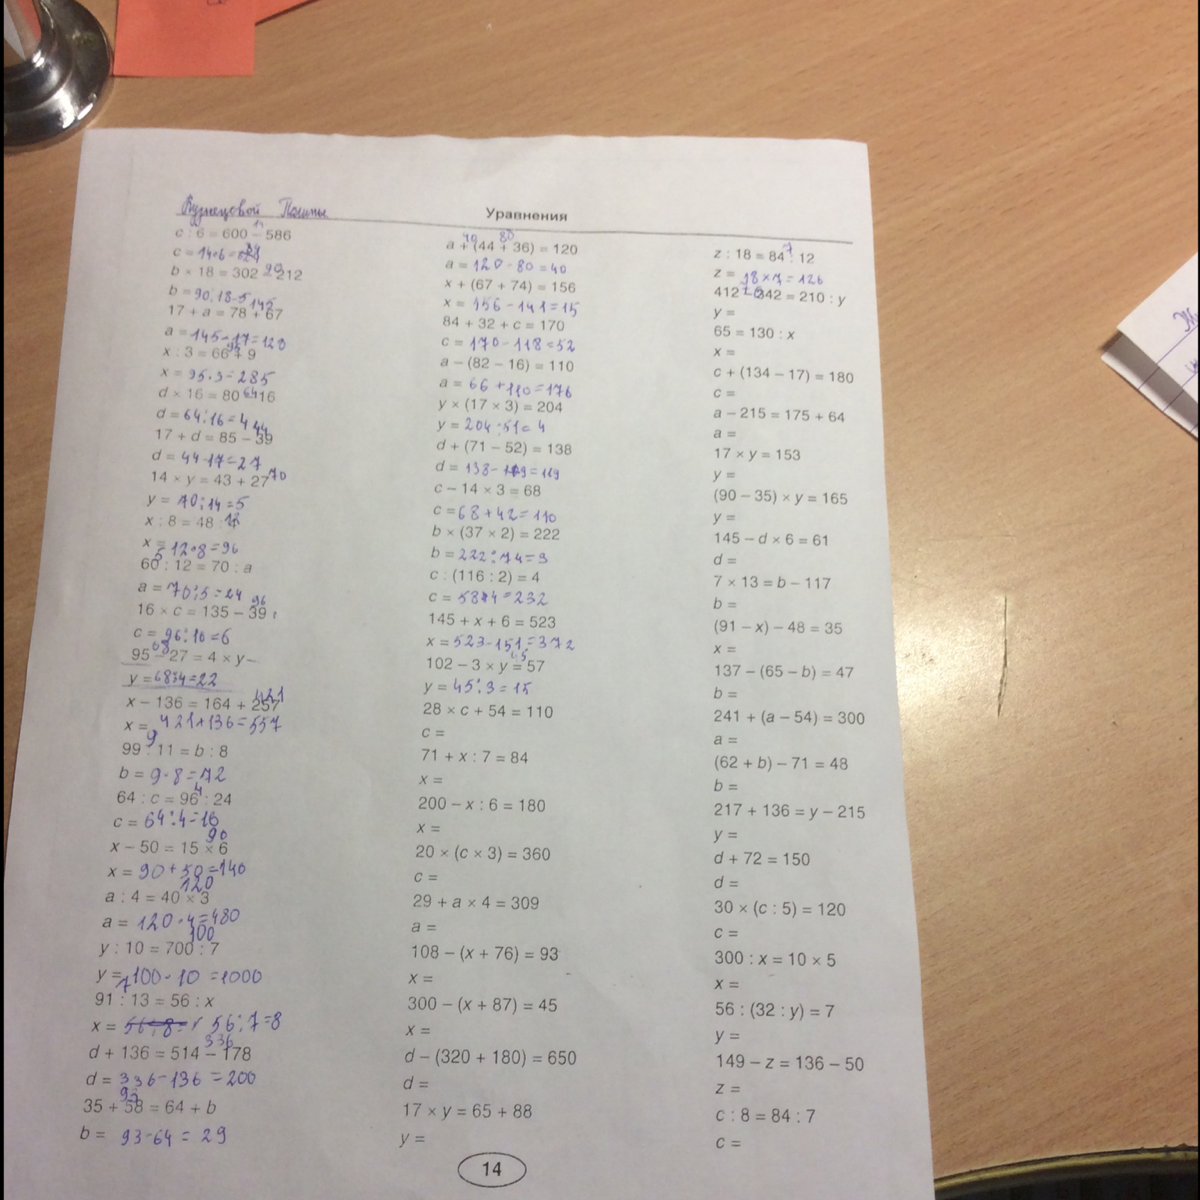 Кузнецовой Полины
Уравнения
c : 6 = 600 – 586
14
c = 14·6 = 84
b × 18 = 302 – 212
90
b = 90:18=5
17 + a = 78 + 67
145
a = 145–17=128
x : 3 = 66 + 9
95
x = 95·3=285
d × 16 = 80 – 16
64
d = 64:16=4
17 + d = 85 – 39
44
d = 44–17=27
14 × y = 43 + 27
70
y = 70:14=5
x : 8 = 48 : 4
12
x = 12·8=96
5
60 : 12 = 70 : a
a = 70:5=24
16 × c = 135 – 39
96
c = 96:16=6
68
95 – 27 = 4 × y
y = 68:4=22
x – 136 = 164 + 257
421
x = 421+136=557
9
99 : 11 = b : 8
b = 9·8=72
4
64 : c = 96 : 24
c = 64:4=16
90
x – 50 = 15 × 6
x = 90+50=140
120
a : 4 = 40 × 3
a = 120·4=480
100
y : 10 = 700 : 7
y = 100·10=1000
7
91 : 13 = 56 : x
x = 56:7=8
336
d + 136 = 514 – 178
d = 336–136=200
93
35 + 58 = 64 + b
b = 93–64=29
40 80
a + (44 + 36) = 120
a = 120–80=40
x + (67 + 74) = 156
x = 156–141=15
84 + 32 + c = 170
c = 170–118=52
a – (82 – 16) = 110
a = 66+110=176
y × (17 × 3) = 204
y = 204:51=4
d + (71 – 52) = 138
d = 138–19=119
c – 14 × 3 = 68
c = 68+42=110
b × (37 × 2) = 222
b = 222:74=3
c : (116 : 2) = 4
c = 58·4=232
145 + x + 6 = 523
x = 523–151=372
45
102 – 3 × y = 57
y = 45:3=15
28 × c + 54 = 110
c =
71 + x : 7 = 84
x =
200 – x : 6 = 180
x =
20 × (c × 3) = 360
c =
29 + a × 4 = 309
a =
108 – (x + 76) = 93
x =
300 – (x + 87) = 45
x =
d – (320 + 180) = 650
d =
17 × y = 65 + 88
y =
7
z : 18 = 84 : 12
z = 18×7=126
412 – 342 = 210 : y
y =
65 = 130 : x
x =
c + (134 – 17) = 180
c =
a – 215 = 175 + 64
a =
17 × y = 153
y =
(90 – 35) × y = 165
y =
145 – d × 6 = 61
d =
7 × 13 = b – 117
b =
(91 – x) – 48 = 35
x =
137 – (65 – b) = 47
b =
241 + (a – 54) = 300
a =
(62 + b) – 71 = 48
b =
217 + 136 = y – 215
y =
d + 72 = 150
d =
30 × (c : 5) = 120
c =
300 : x = 10 × 5
x =
56 : (32 : y) = 7
y =
149 – z = 136 – 50
z =
c : 8 = 84 : 7
c =
14